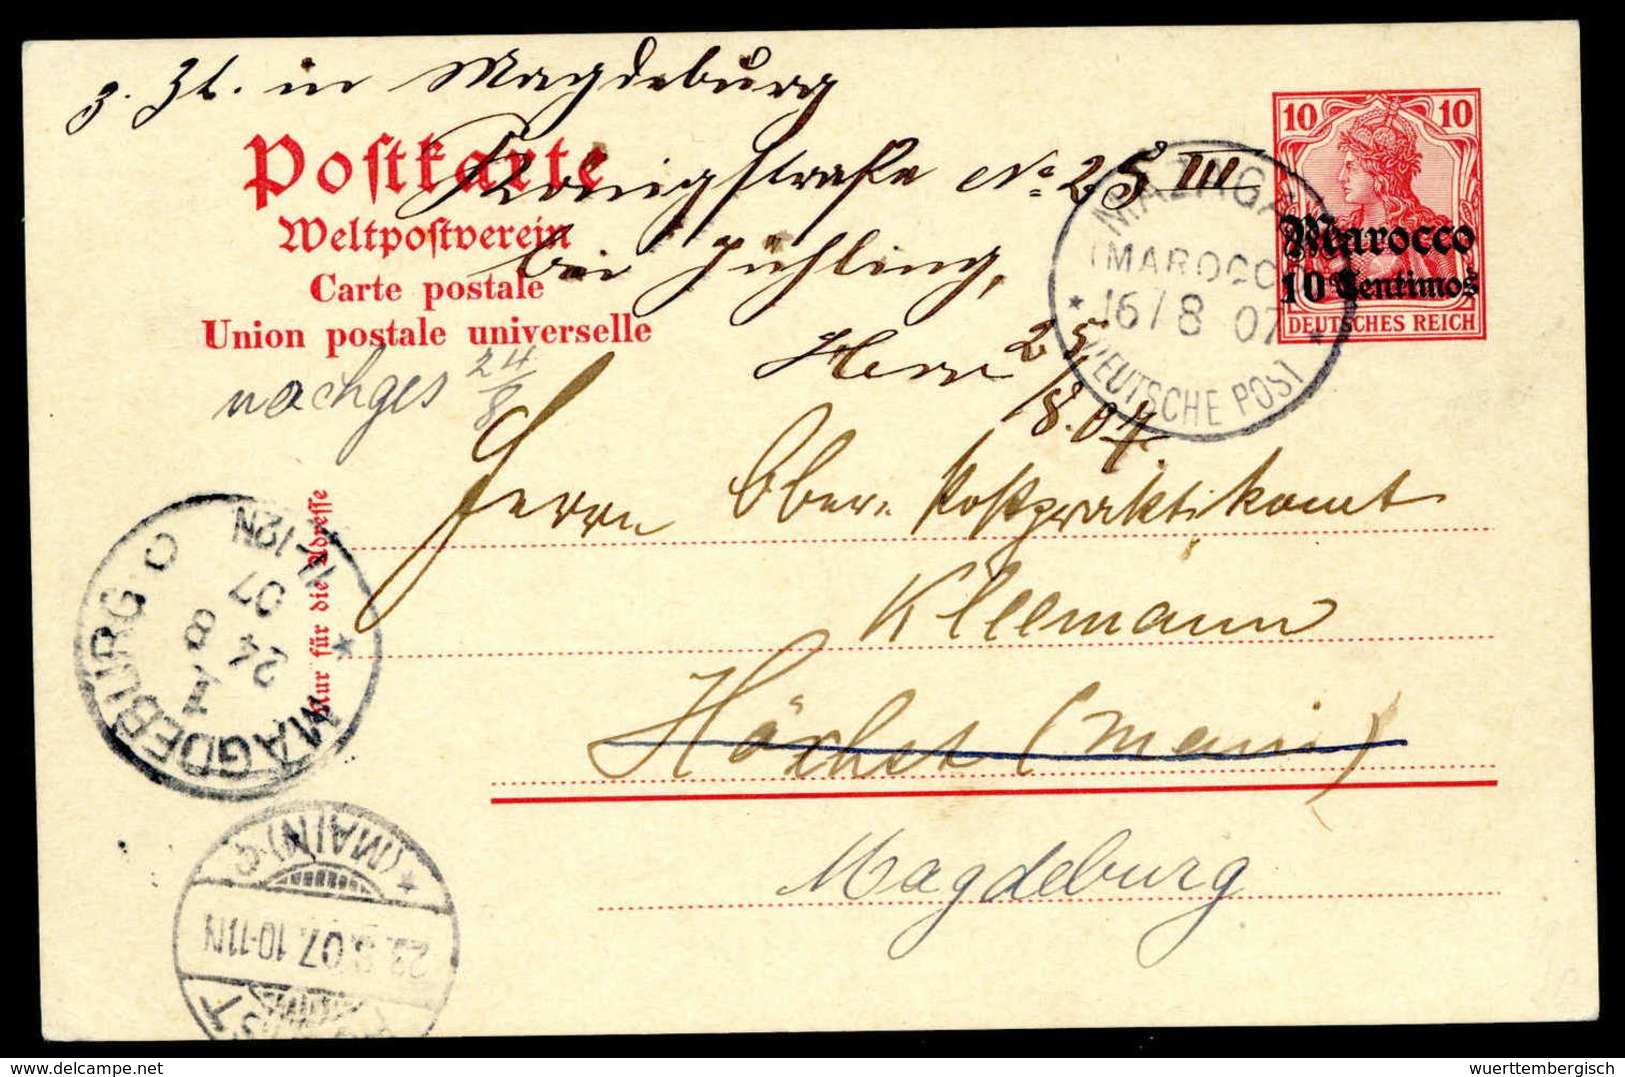 z. Zt. in Magdeburg
Postkarte
Königstraße No 25 III
Weltpostverein
bei Jühling,
Carte postale
Union postale universelle
nachges 24/8
Herr
25/8.07.
10 10
Marocco
10 Centimos
DEUTSCHES REICH
MAZAGAN
(MAROCCO)
* 16/8 07 *
DEUTSCHE POST
Herrn Ober-Postpraktikant
Kleemann
Höchst (Main)
Magdeburg
Nur für die Adresse
MAGDEBURG
24 8
07
-12N
HÖCHST
23.8.07.10-11N
(MAIN)
wuerttembergisch